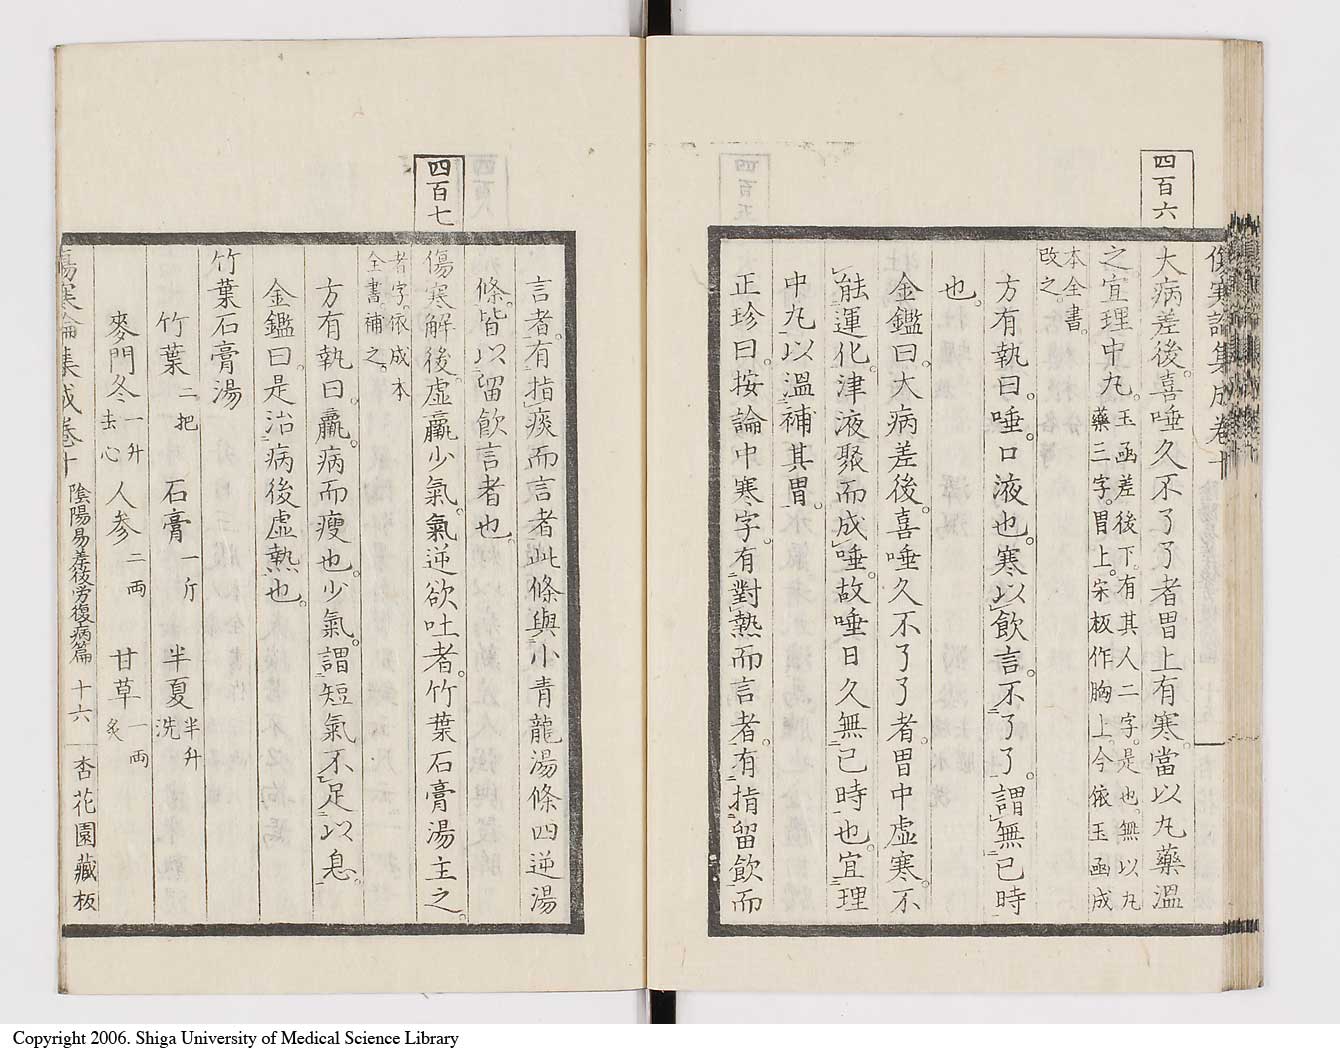 四百六
傷寒論集成卷十
大病差後喜唾久不了了者胃上有寒當以丸藥溫
之宜理中丸。玉函差後下。有其人二字。是也。無以丸
藥三字。胃上。宋板作胸上。今依玉函成
本全書。
改之。
方有執曰。唾。口液也。寒以飮言。不了了。謂無已時
也。
金鑑曰。大病差後。喜唾久不了了者。胃中虛寒。不
能運化津液聚而成唾。故唾日久無已時也。宜理
中丸以溫補其胃。
正珍曰。按論中寒字。有對熱而言者。有指留飮而
言者。有指痰而言者。此條與小青龍湯條四逆湯
條。皆以留飮言者也。
四百七
傷寒解後。虛羸少氣。氣逆欲吐者。竹葉石膏湯主之。
者字。依成本
全書補之。
方有執曰。羸。病而瘦也。少氣。謂短氣不足以息。
金鑑曰。是治病後虛熱也。
竹葉石膏湯
竹葉二把 石膏一斤 半夏半升洗
麥門冬一升去心 人參二兩 甘草一兩炙
傷寒論集成卷十 陰陽易差後勞復病篇 十六 杏花園藏板
Copyright 2006. Shiga University of Medical Science Library